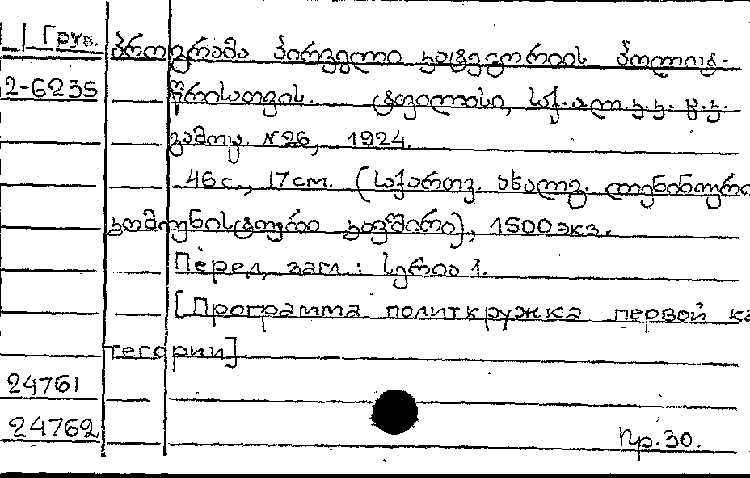 Груз. პროგრამა პირველი კატეგორიის პოლიტ-
2-6235 წრისათვის. ტფილისი, საქ.ალ.კ.კ. ც.კ.
გამოც. №26, 1924.
46с., 17см. (საქართვ. ახალგ. ლენინური
კომუნისტური კავშირი), 1500экз.
Перед загл.: სერია 1.
[Программа политкружка первой ка
тегории]
24761
24762 Пр.30.